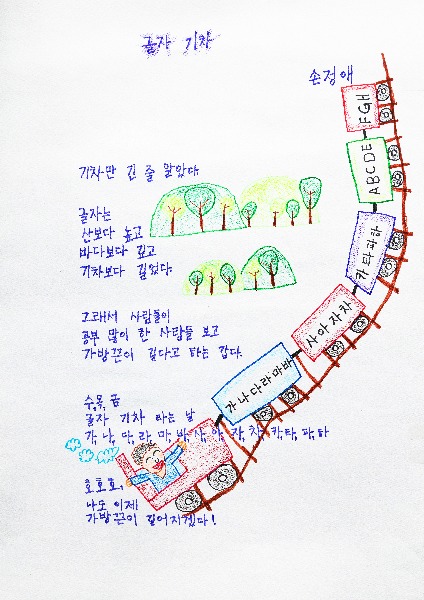 글자 기차
손정애
기차만 긴 줄 알았다
글자는
산보다 높고
바다보다 깊고
기차보다 길었다.
그래서 사람들이
공부 많이 한 사람들 보고
가방끈이 길다고 하는 갑다.
수,목,금
글자 기차 타는 날
가, 나, 다, 라, 마, 바, 사, 아, 자, 차, 카, 타, 파, 하
호호호,
나도 이제!
가방끈이 길어지겠다!
FGH
ABCDE
카타파하
사아자차
가나다라마바